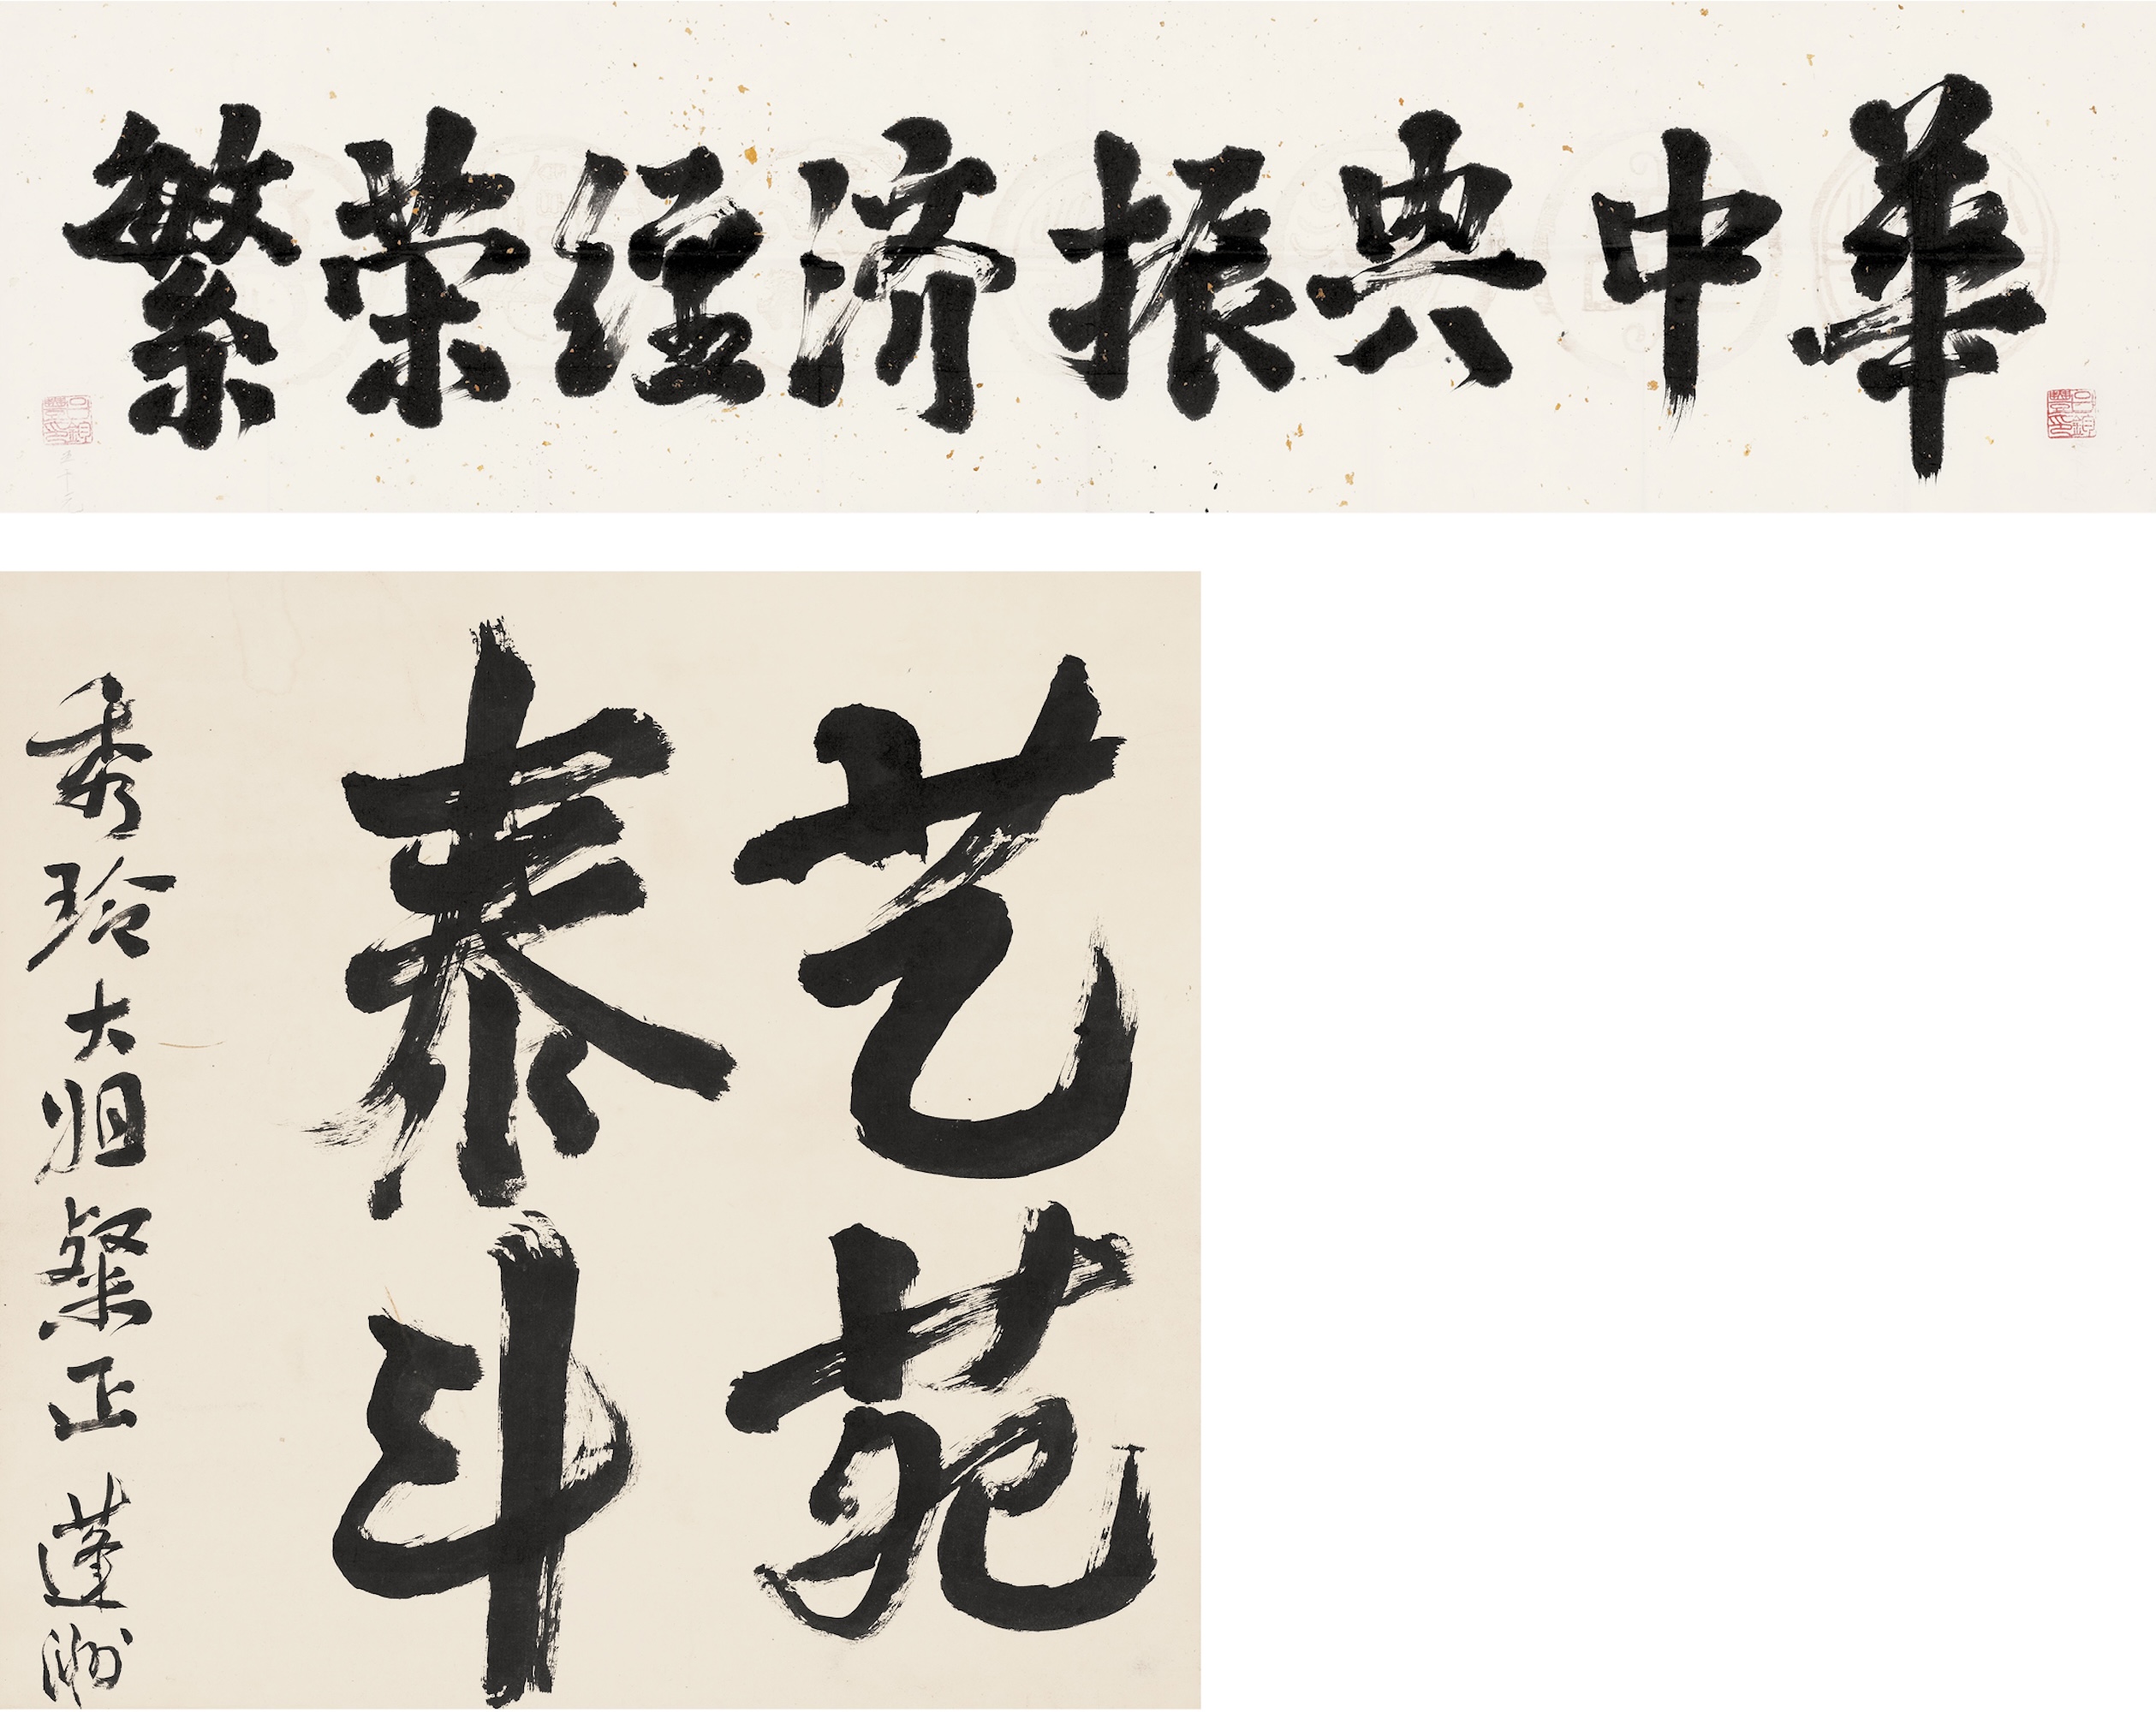 繁荣经济振興中華
艺苑
泰斗
秀玲大姐粲正 蓬洲